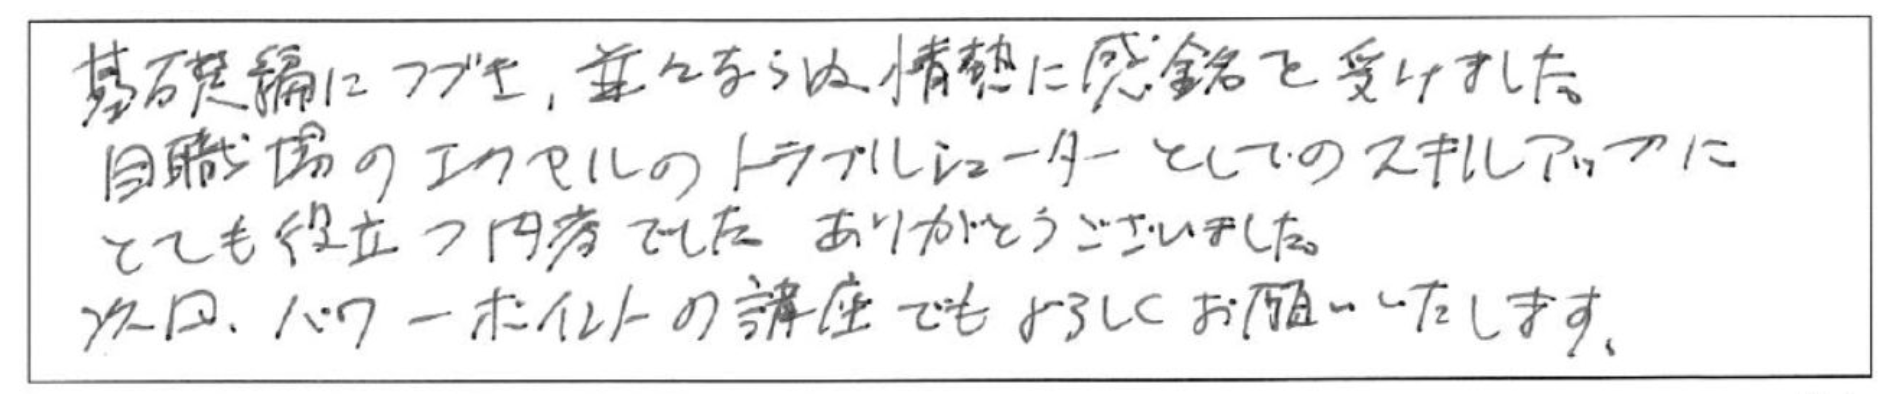 基礎編につづき、並々ならぬ情熱に感銘を受けました。
自職場のエクセルのトラブルシューターとしてのスキルアップに
とても役立つ内容でした ありがとうございました。
次回、パワーポイントの講座でもよろしくお願いいたします。